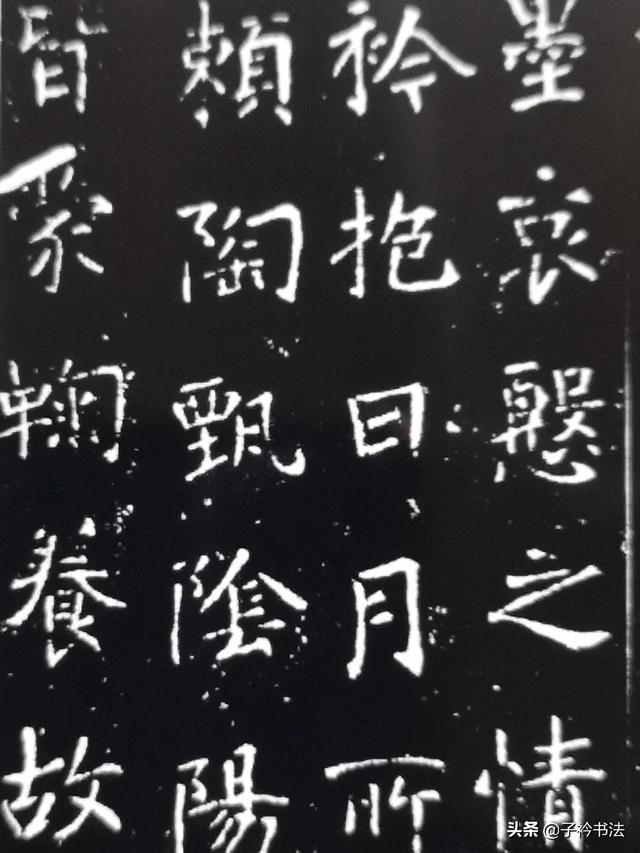 墨哀慇之情
衿抱日月所
頼陶甄陰陽
皆蒙鞠養故
头条 @子衿书法